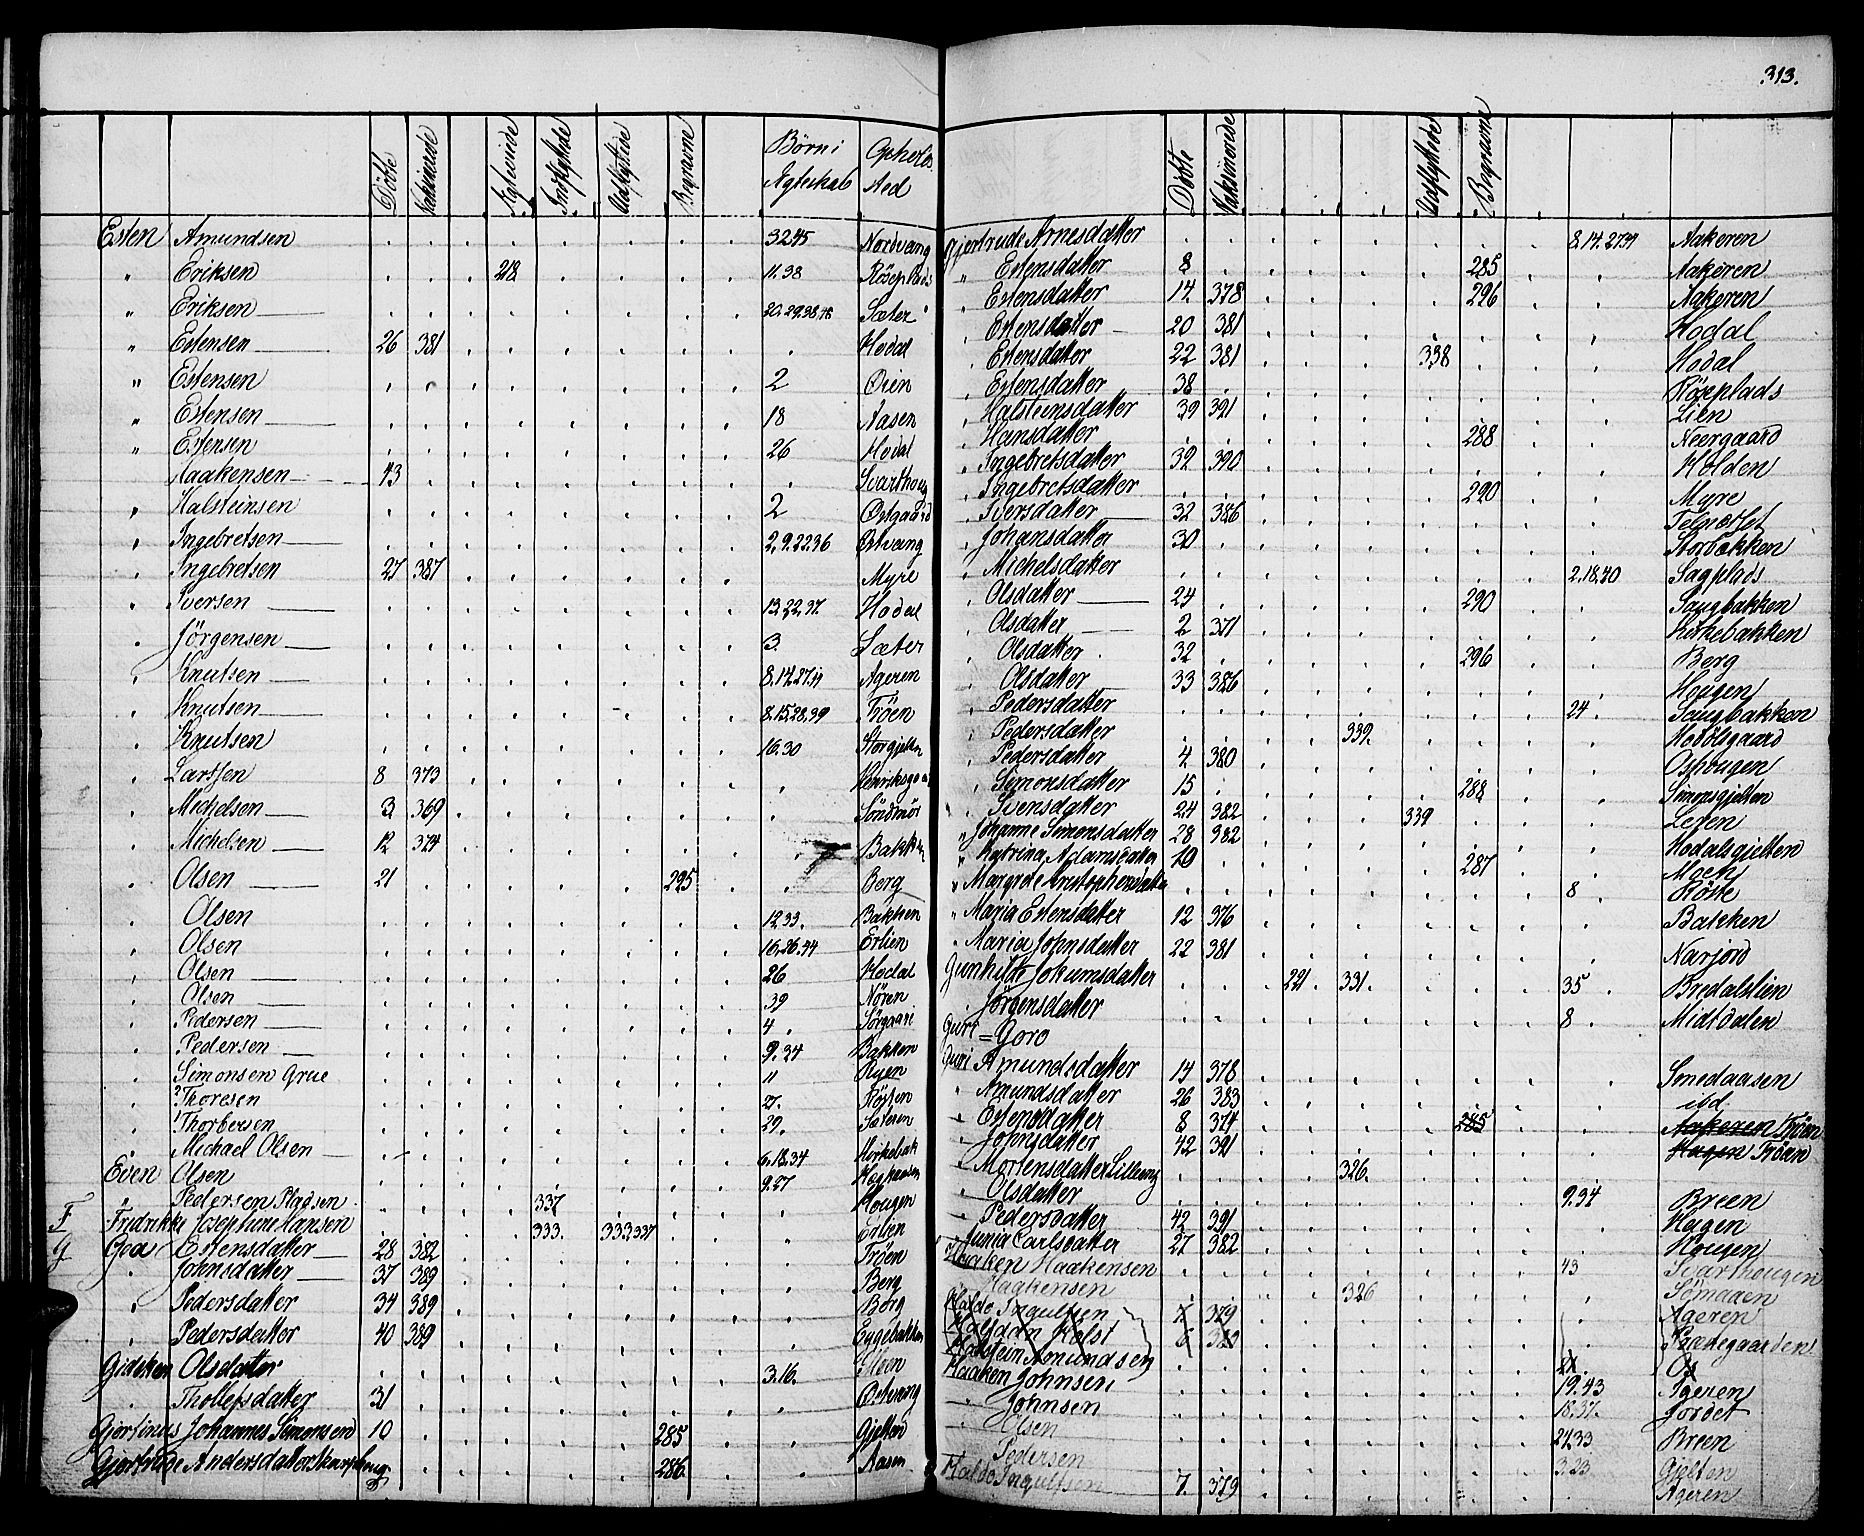 313.
Döbte Vaksinerede Ægteviede Indflyttede Udflyttede Begravne Börn i Ægteskab Opholds Sted
Esten Amundsen 32.45 Nordvang
" Eriksen 218 11.38 Röseplads
" Eriksen 20.29.38.48 Sæter
" Estensen 26 381 Hodal
" Estensen 2 Öien
" Estensen 18 Aasen
" Estensen 26 Hodal
Haakensen 43 Svarthoug
" Halsteinsen 2 Östgaard
" Ingebretsen 2.9.22.36 Östvang
" Ingebretsen 27 387 Myre
" Iversen 13.22.37 Hodal
" Jörgensen 3. Sæter
" Knutsen 8.14.27.44 Ageren
" Knutsen 8.15.28.39 Tröen
" Knutsen 16.30 Storgjelten
" Larssen 8 373
" Michelsen 3 369 Söndmör
" Michelsen 12 374 Bakken
" Olsen 21 295 Berg
" Olsen 12.33. Bakken
" Olsen 16.26.44 Erlien
" Olsen 26 Hodal
" Olsen 39 Nören
" Pedersen 4 Sörgaard
" Pedersen 9.24 Bakken
" Simonsen Grue 11 Ryen
" Thoresen 27. Röften
" Thorbersen 29. Sæteren
" Michael Olsen 6.18.34
Even Olsen 9.27
Pedersen Pladsen 337 Hougen
F Fridrikke Josephine Hansen 333. 333.337 Erlien
G Goa Estensdatter 28 382 Tröen
" Johnsdatter 37 389 Berg
" Pedersdatter 34 389 Borg
" Pedersdatter 40 389 Eggebakken
Gidsken Olsdatter 3.16. Moen
" Thollefsdatter 31 Östvang
Gjertinus Johannes Simonsen 10 285 Gjelten
Gjertrude Andersdatter 286 Aasen
Döbte Vaksinerede Udflyttede Begravne
Gjertrude Arnesdatter 8.14.27.44 Aakeren
" Estensdatter 8 285 Aakeren
" Estensdatter 14 378 296 Aakeren
" Estensdatter 20 381 Hodal
" Estensdatter 22 381 338 Hodal
" Estensdatter 38 Röseplads
" Halsteinsdatter 39 391 Lien
" Hansdatter 288 Neergaard
" Ingebretsdatter 32 390 Holden
" Ingebretsdatter 290 Myre
" Iversdatter 32 386 Telnæset
" Johansdatter 30 Storbækken
" Michelsdatter 2.18.40 Sagplads
" Olsdatter 24 290 Saugbakken
" Olsdatter 2 371 Kirkebakken
" Olsdatter 32 296 Berg
" Olsdatter 33 386 Hougen
" Pedersdatter 24 Saugbakken
" Pedersdatter 339. Hodolsgaard
" Pedersdatter 4 380 Oshougen
" Simonsdatter 15 288 Simensgjelten
" Svensdatter 24 382 339 Leeen
" Johanne Simonsdatter 28 382 Hodalsgjelten
" Katrina Adamsdatter 10 287 Moen
" Margrete Kristophersdatter 8 Röste
" Maria Estensdatter 12 376 Bakken
" Maria Johnsdatter 22 381 Narjord
Gunhild Jokumsdatter 221 331. 35 Bredalslien
" Jörgensdatter 8 Midtdalen
Guri = Goro
Guri Amundsdatter 14 378 Smedaasen
" Amundsdatter 26 383 ibd
" Estensdatter 8 374 285 Aakeren Tröen
" Johnsdatter 42 391 Hagen Tröen
" Mortensdatter Lilleeng 326.
" Olsdatter 9.34 Breen
" Pedersdatter 42 391 Hagen
Junia Carlsdatter 27 382 Hougen
Haaken Haakensen 43 Svarthougen
Haakensen 326 Sömoen
Haldo Ingulfsen 7 379 Ageren
Halfdan Holst 6 Præstegaarden
Halstein Amundsen 21. Os
Haaken Johnsen 19.43 Ageren
" Johnsen 18.37. Jordet
" Olsen 24.33 Breen
" Pedersen 3.23 Gjelten
Haldo Ingulfsen 7. 379 Ageren